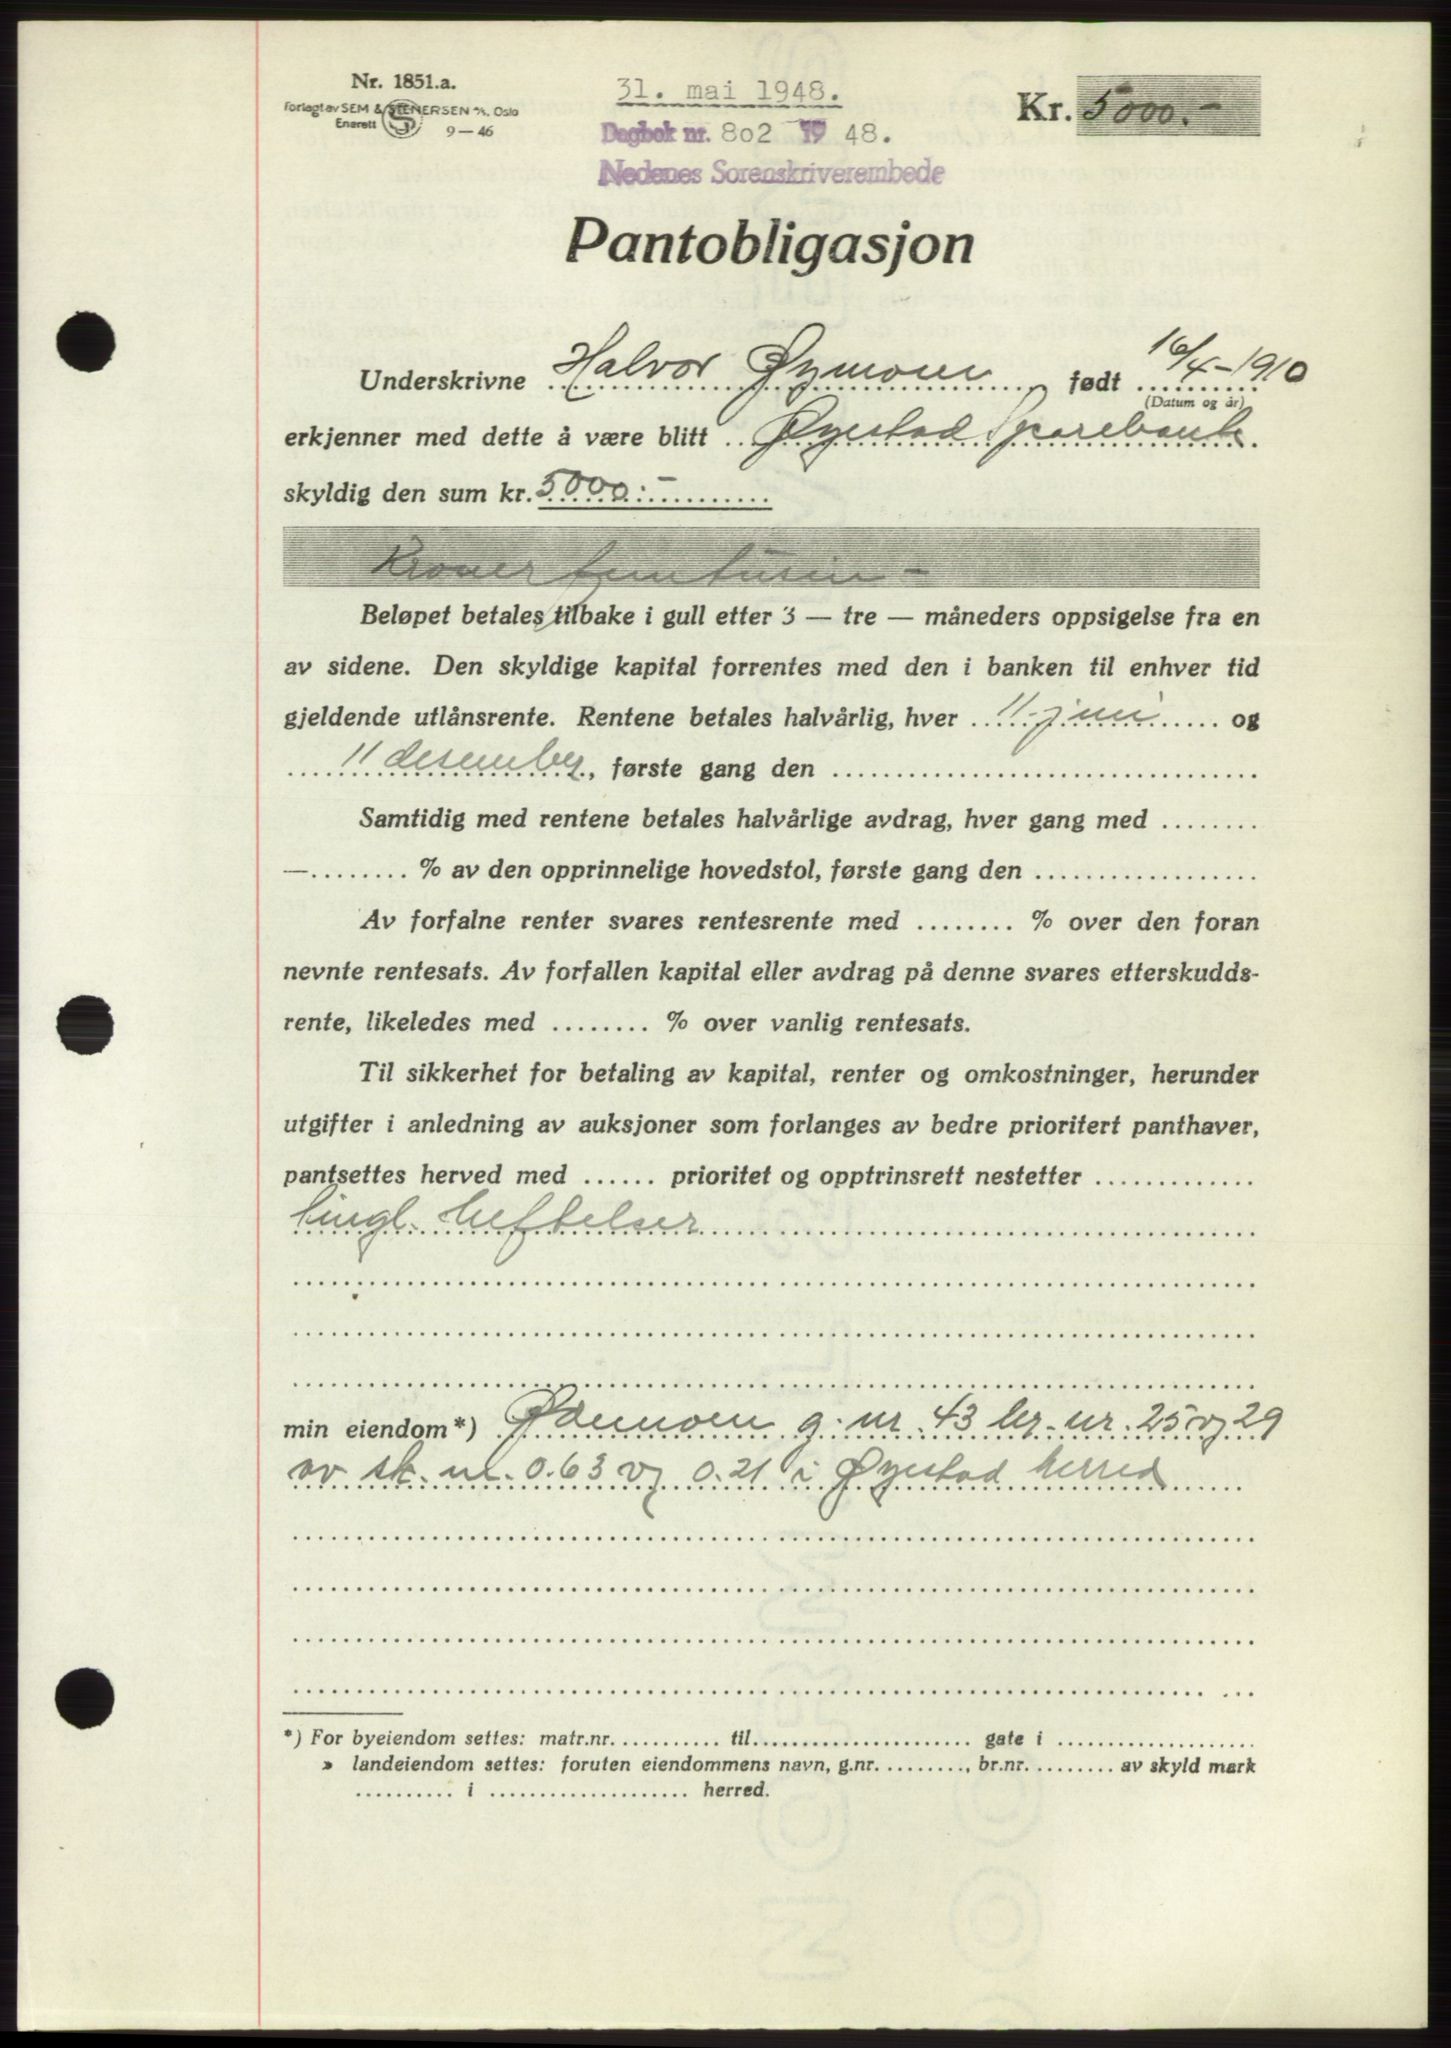 Nr. 1851.a.
Forlagt av SEM & STENERSEN A/S, Oslo
Enerett 9-46
31. mai 1948.
Dagbok nr. 802 1948.
Nedenes Sorenskriverembede
Kr. 5000.-
Pantobligasjon
Underskrivne Halvor Øymoen, født 16/4-1910
(Datum og år)
erkjenner med dette å være blitt Øyestad Sparebank
skyldig den sum kr. 5000:-
Kroner femtusin -
Beløpet betales tilbake i gull etter 3 — tre — måneders oppsigelse fra en
av sidene. Den skyldige kapital forrentes med den i banken til enhver tid
gjeldende utlånsrente. Rentene betales halvårlig, hver 11. juni og
11 desember, første gang den
Samtidig med rentene betales halvårlige avdrag, hver gang med
— % av den opprinnelige hovedstol, første gang den
Av forfalne renter svares rentesrente med % over den foran
nevnte rentesats. Av forfallen kapital eller avdrag på denne svares etterskudds-
rente, likeledes med % over vanlig rentesats.
Til sikkerhet for betaling av kapital, renter og omkostninger, herunder
utgifter i anledning av auksjoner som forlanges av bedre prioritert panthaver,
pantsettes herved med prioritet og opptrinsrett nestetter
tingl. heftelser
min eiendom*) g. nr. 43 br. nr. 25 og 29
av sk. m. 0.63 og 0.21 i Øyestad herred
*) For byeiendom settes: matr.nr. til gate i
» landeiendom settes: foruten eiendommens navn, g.nr. , br.nr. av skyld mark
i herred.